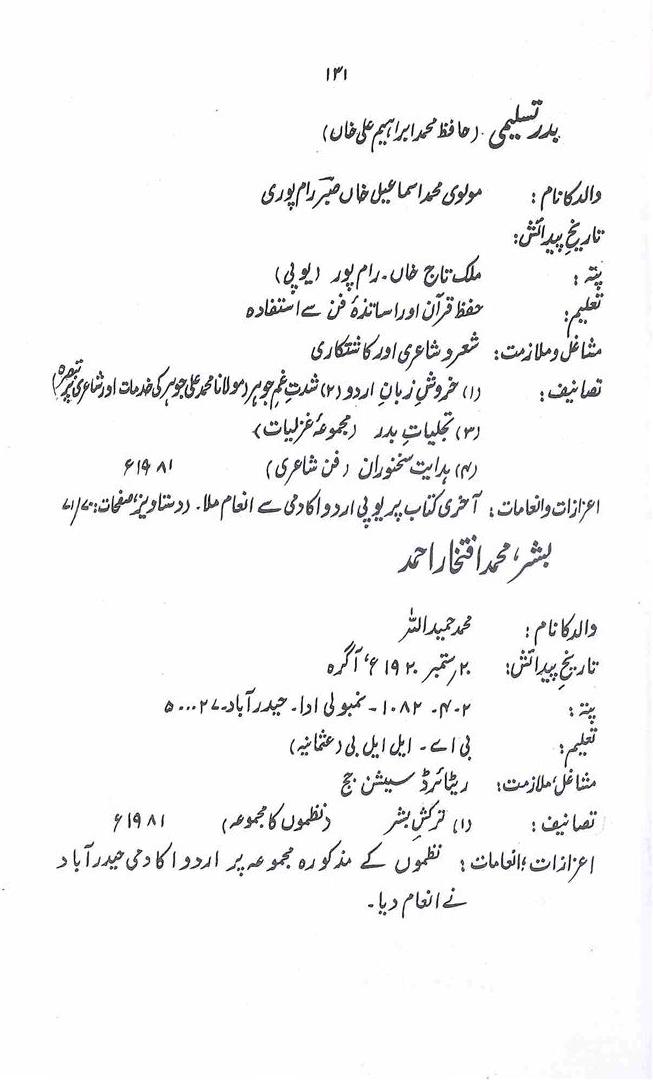 ۱۳۱
بدر تسلیمی ۔ (حافظ محمد ابراہیم علی خاں)
والد کا نام : مولوی محمد اسماعیل خاں صبر رام پوری
تاریخِ پیدائش:
پتہ : ملک تاج خاں۔ رام پور (یو پی)
تعلیم: حفظ قرآن اور اساتذۂ فن سے استفادہ
مشاغل و ملازمت: شعر و شاعری اور کاشتکاری
تصانیف : (۱) خروشِ زبانِ اردو (۲) شدتِ غمِ جوہر (مولانا محمد علی جوہر کی خدمات اور شاعری پر تبصرہ)
(۳) تجلیاتِ بدر (مجموعۂ غزلیات)
(۴) ہدایت سخنوران (فن شاعری) ۱۹۸۱ء
اعزازات و انعامات : آخری کتاب پر یو پی اردو اکادمی سے انعام ملا۔ (دستاویز، صفحات: ۷۰/۷۱
بشر، محمد افتخار احمد
والد کا نام : محمد حمید اللہ
تاریخِ پیدائش: ۲۰ ستمبر ۱۹۲۰ء، آگرہ
پتہ : ۲-۴-۱۰۸۲ - نمبولی ادا۔ حیدرآباد۔ ۵۰۰۰۲۷
تعلیم: بی اے ۔ ایل ایل بی (عثمانیہ)
مشاغل، ملازمت: ریٹائرڈ سیشن جج
تصانیف : (۱) ترکشِ بشر (نظموں کا مجموعہ) ۱۹۸۱ء
اعزازات، انعامات : نظموں کے مذکورہ مجموعہ پر اردو اکادمی حیدرآباد
نے انعام دیا۔